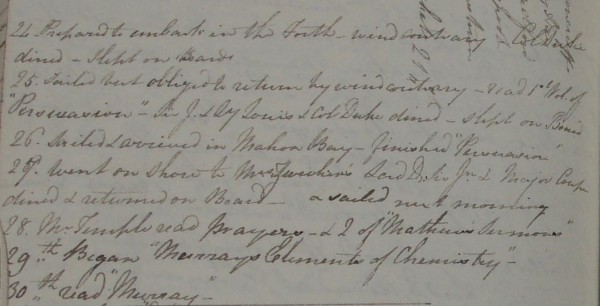 24. Prepared to embark in the Forth - wind contrary Col Duke
dined - slept on Board
25. Sailed but obliged to return by wind contrary - read 1st Vol. of
"Persuasion" - Sir J. & Ly Louis & Col Duke dined - slept on Board
26. Sailed & arrived in Mahon Bay - finished "Persuasion"
27. went on shore to Mrs Lord D, Sir Jn & Major
dined & returned on Board - & sailed next morning
28. Mr Temple read prayers - & 2 of "Mathews Sermons"
29.th Began "Murrays Elements of Chemistry" -
30th read "Murray" -